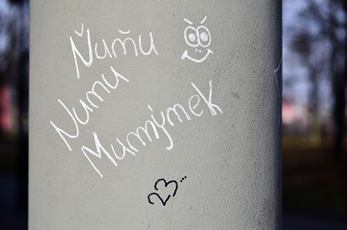 Ňuňu
Nunu
Mumýmek